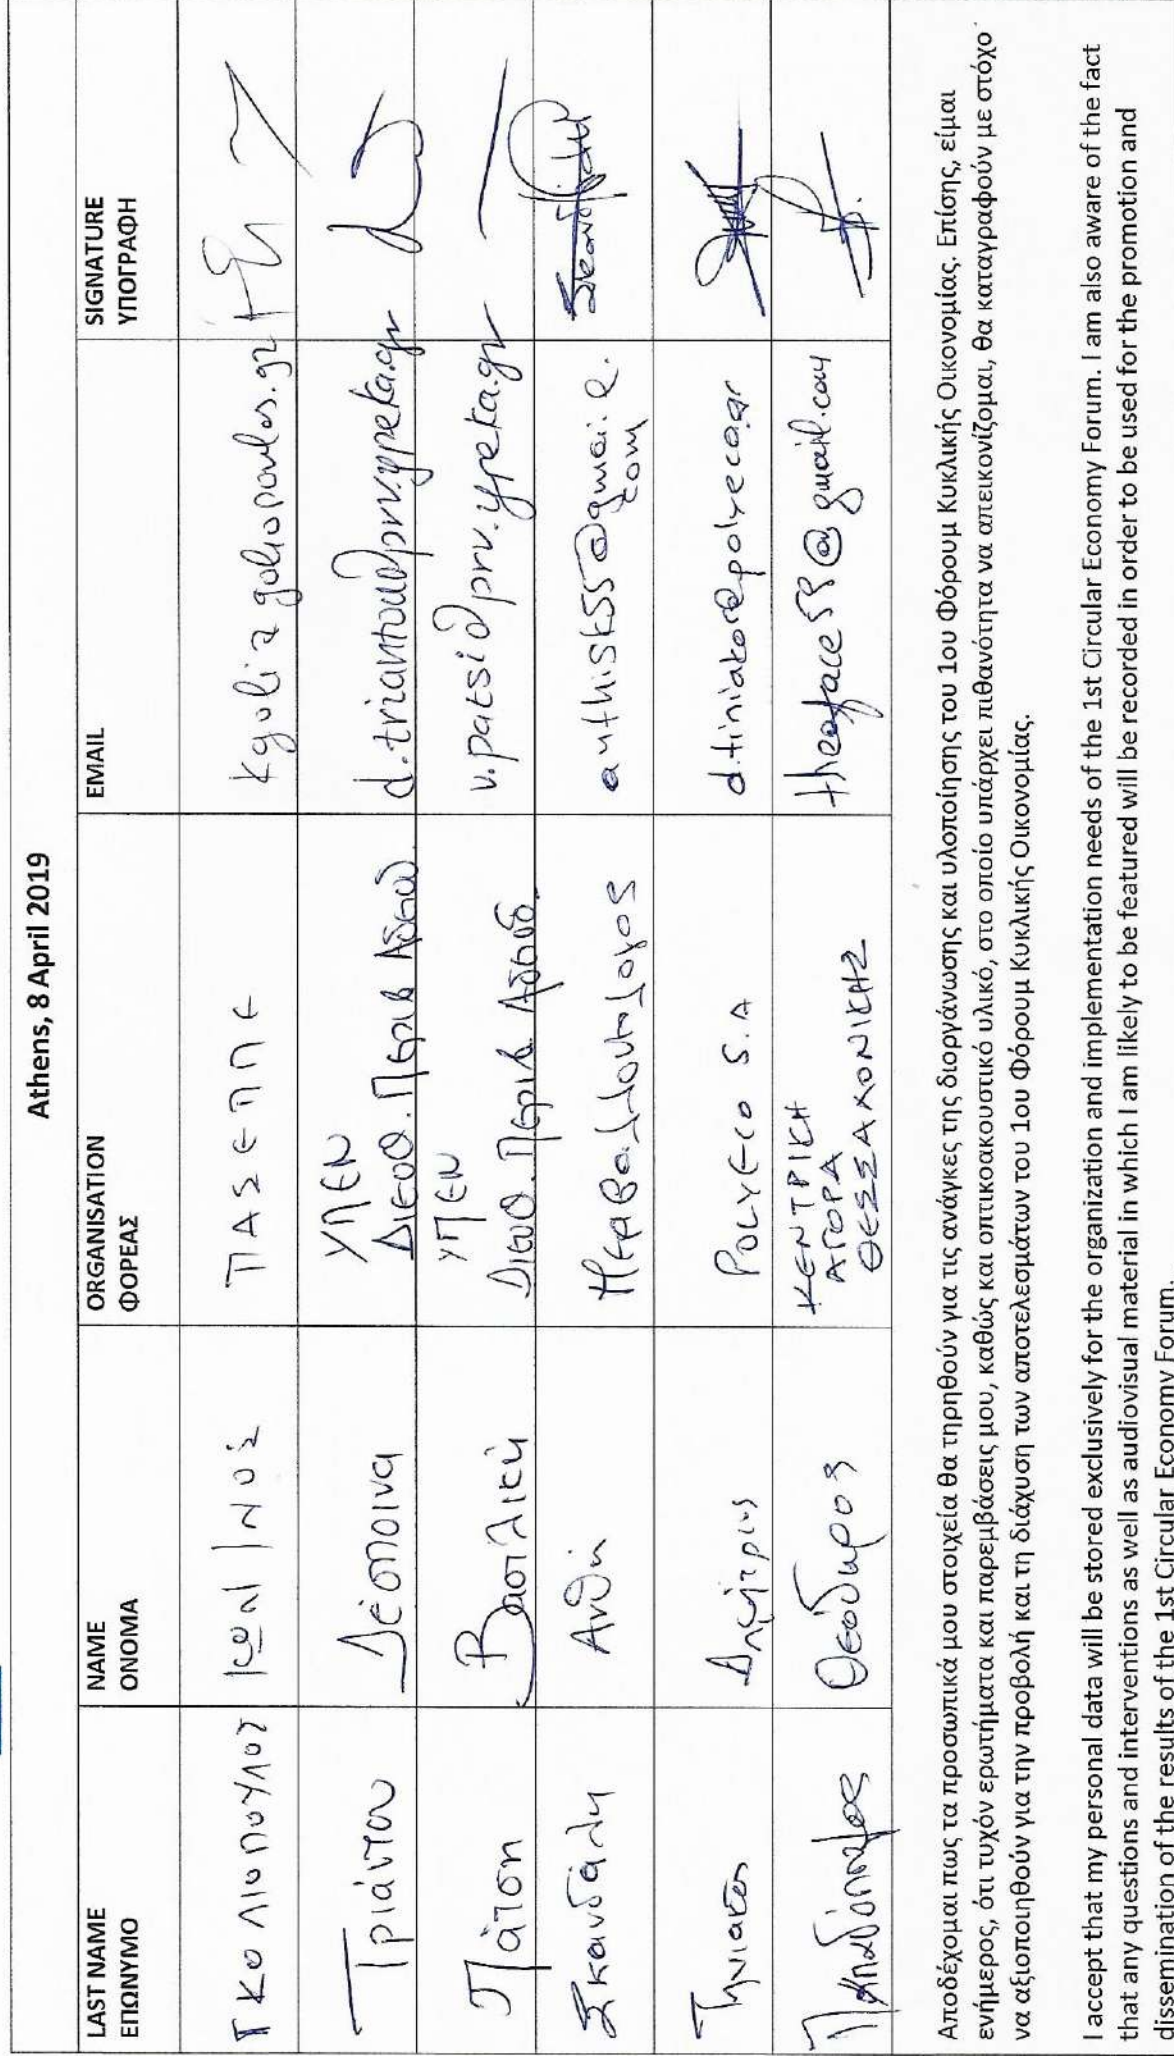 Athens, 8 April 2019
LAST NAME ΕΠΩΝΥΜΟ NAME ΟΝΟΜΑ ORGANISATION ΦΟΡΕΑΣ EMAIL SIGNATURE ΥΠΟΓΡΑΦΗ
ΓΚΟΛΙΟΠΟΥΛΟΣ ΚΩΝ/ΝΟΣ ΠΑΣΕΠΠΕ kgoliagoliopoulos.gr
Τριάντου Δέσποινα ΥΠΕΝ d.triantou@prv.ypeka.gr
Διευθ. Περιβ
Πάτση Βασιλική ΥΠΕΝ v.patsi@prv.ypeka.gr
Διευθ. Περιβ.
Σκανδάλη Ανθή Περιβαλλοντολόγος anthisk55@gmail.
com
Τηνιακός Δημήτριος POLYECO S.A d.tiniakos@polyeco.gr
Παπαδόπουλος Θεόδωρος ΚΕΝΤΡΙΚΗ
ΑΓΟΡΑ
ΘΕΣΣΑΛΟΝΙΚΗΣ @gmail.com
Αποδέχομαι πως τα προσωπικά μου στοιχεία θα τηρηθούν για τις ανάγκες της διοργάνωσης και υλοποίησης του 1ου Φόρουμ Κυκλικής Οικονομίας. Επίσης, είμαι
ενήμερος, ότι τυχόν ερωτήματα και παρεμβάσεις μου, καθώς και οπτικοακουστικό υλικό, στο οποίο υπάρχει πιθανότητα να απεικονίζομαι, θα καταγραφούν με στόχο
να αξιοποιηθούν για την προβολή και τη διάχυση των αποτελεσμάτων του 1ου Φόρουμ Κυκλικής Οικονομίας.
I accept that my personal data will be stored exclusively for the organization and implementation needs of the 1st Circular Economy Forum. I am also aware of the fact
that any questions and interventions as well as audiovisual material in which I am likely to be featured will be recorded in order to be used for the promotion and
dissemination of the results of the 1st Circular Economy Forum.